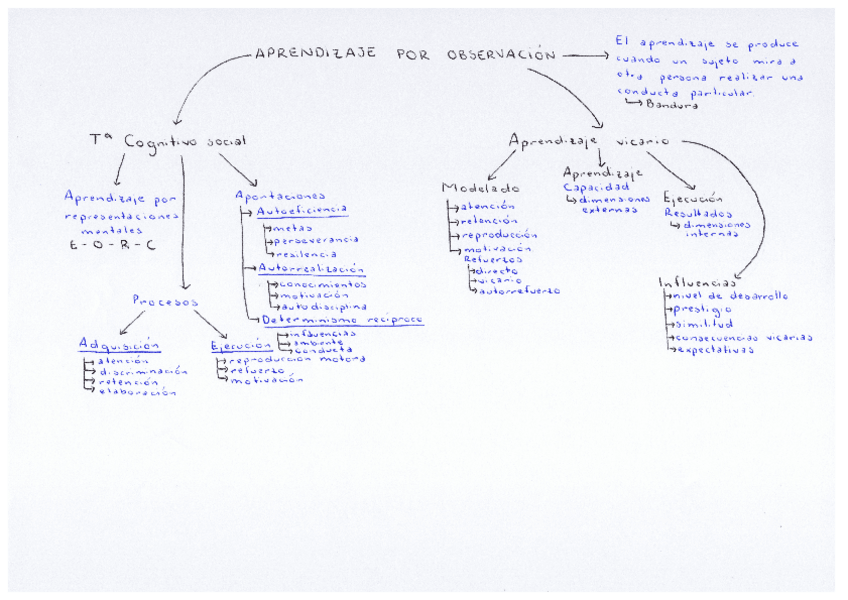 APRENDIZAJE POR OBSERVACIÓN
El aprendizaje se produce
cuando un sujeto mira a
otra persona realizar una
conducta particular.
Bandura
Tª Cognitivo social
Aprendizaje por
representaciones
mentales
E - O - R - C
Procesos
Adquisición
atención
discriminación
retención
elaboración
Ejecución
reproducción motora
refuerzo
motivación
Aportaciones
Autoeficiencia
metas
perseverancia
resilencia
Autorrealización
conocimientos
motivación
autodisciplina
Determinismo recíproco
influencias
ambiente
conducta
Aprendizaje vicario
Modelado
atención
retención
reproducción
motivación
Refuerzos
directo
vicario
autorrefuerzo
Aprendizaje
Capacidad
dimensiones
externas
Ejecución
Resultados
dimensiones
internas
Influencias
nivel de desarrollo
prestigio
similitud
consecuencias vicarias
expectativas